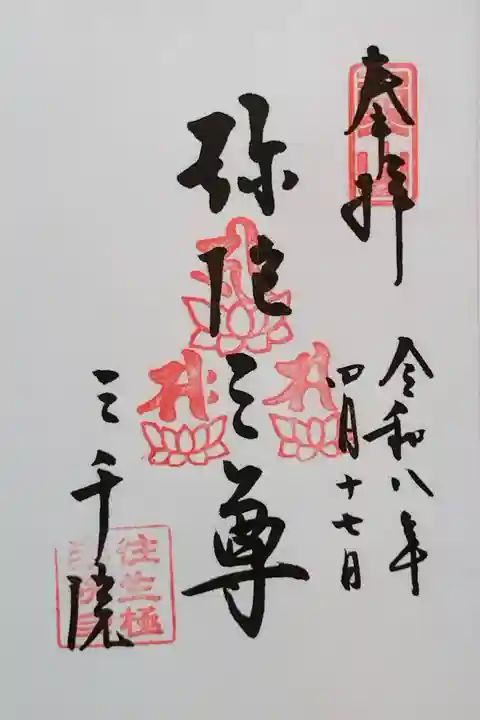 奉拝
令和八年
四月十七日
弥陀三尊
三千院
往生極